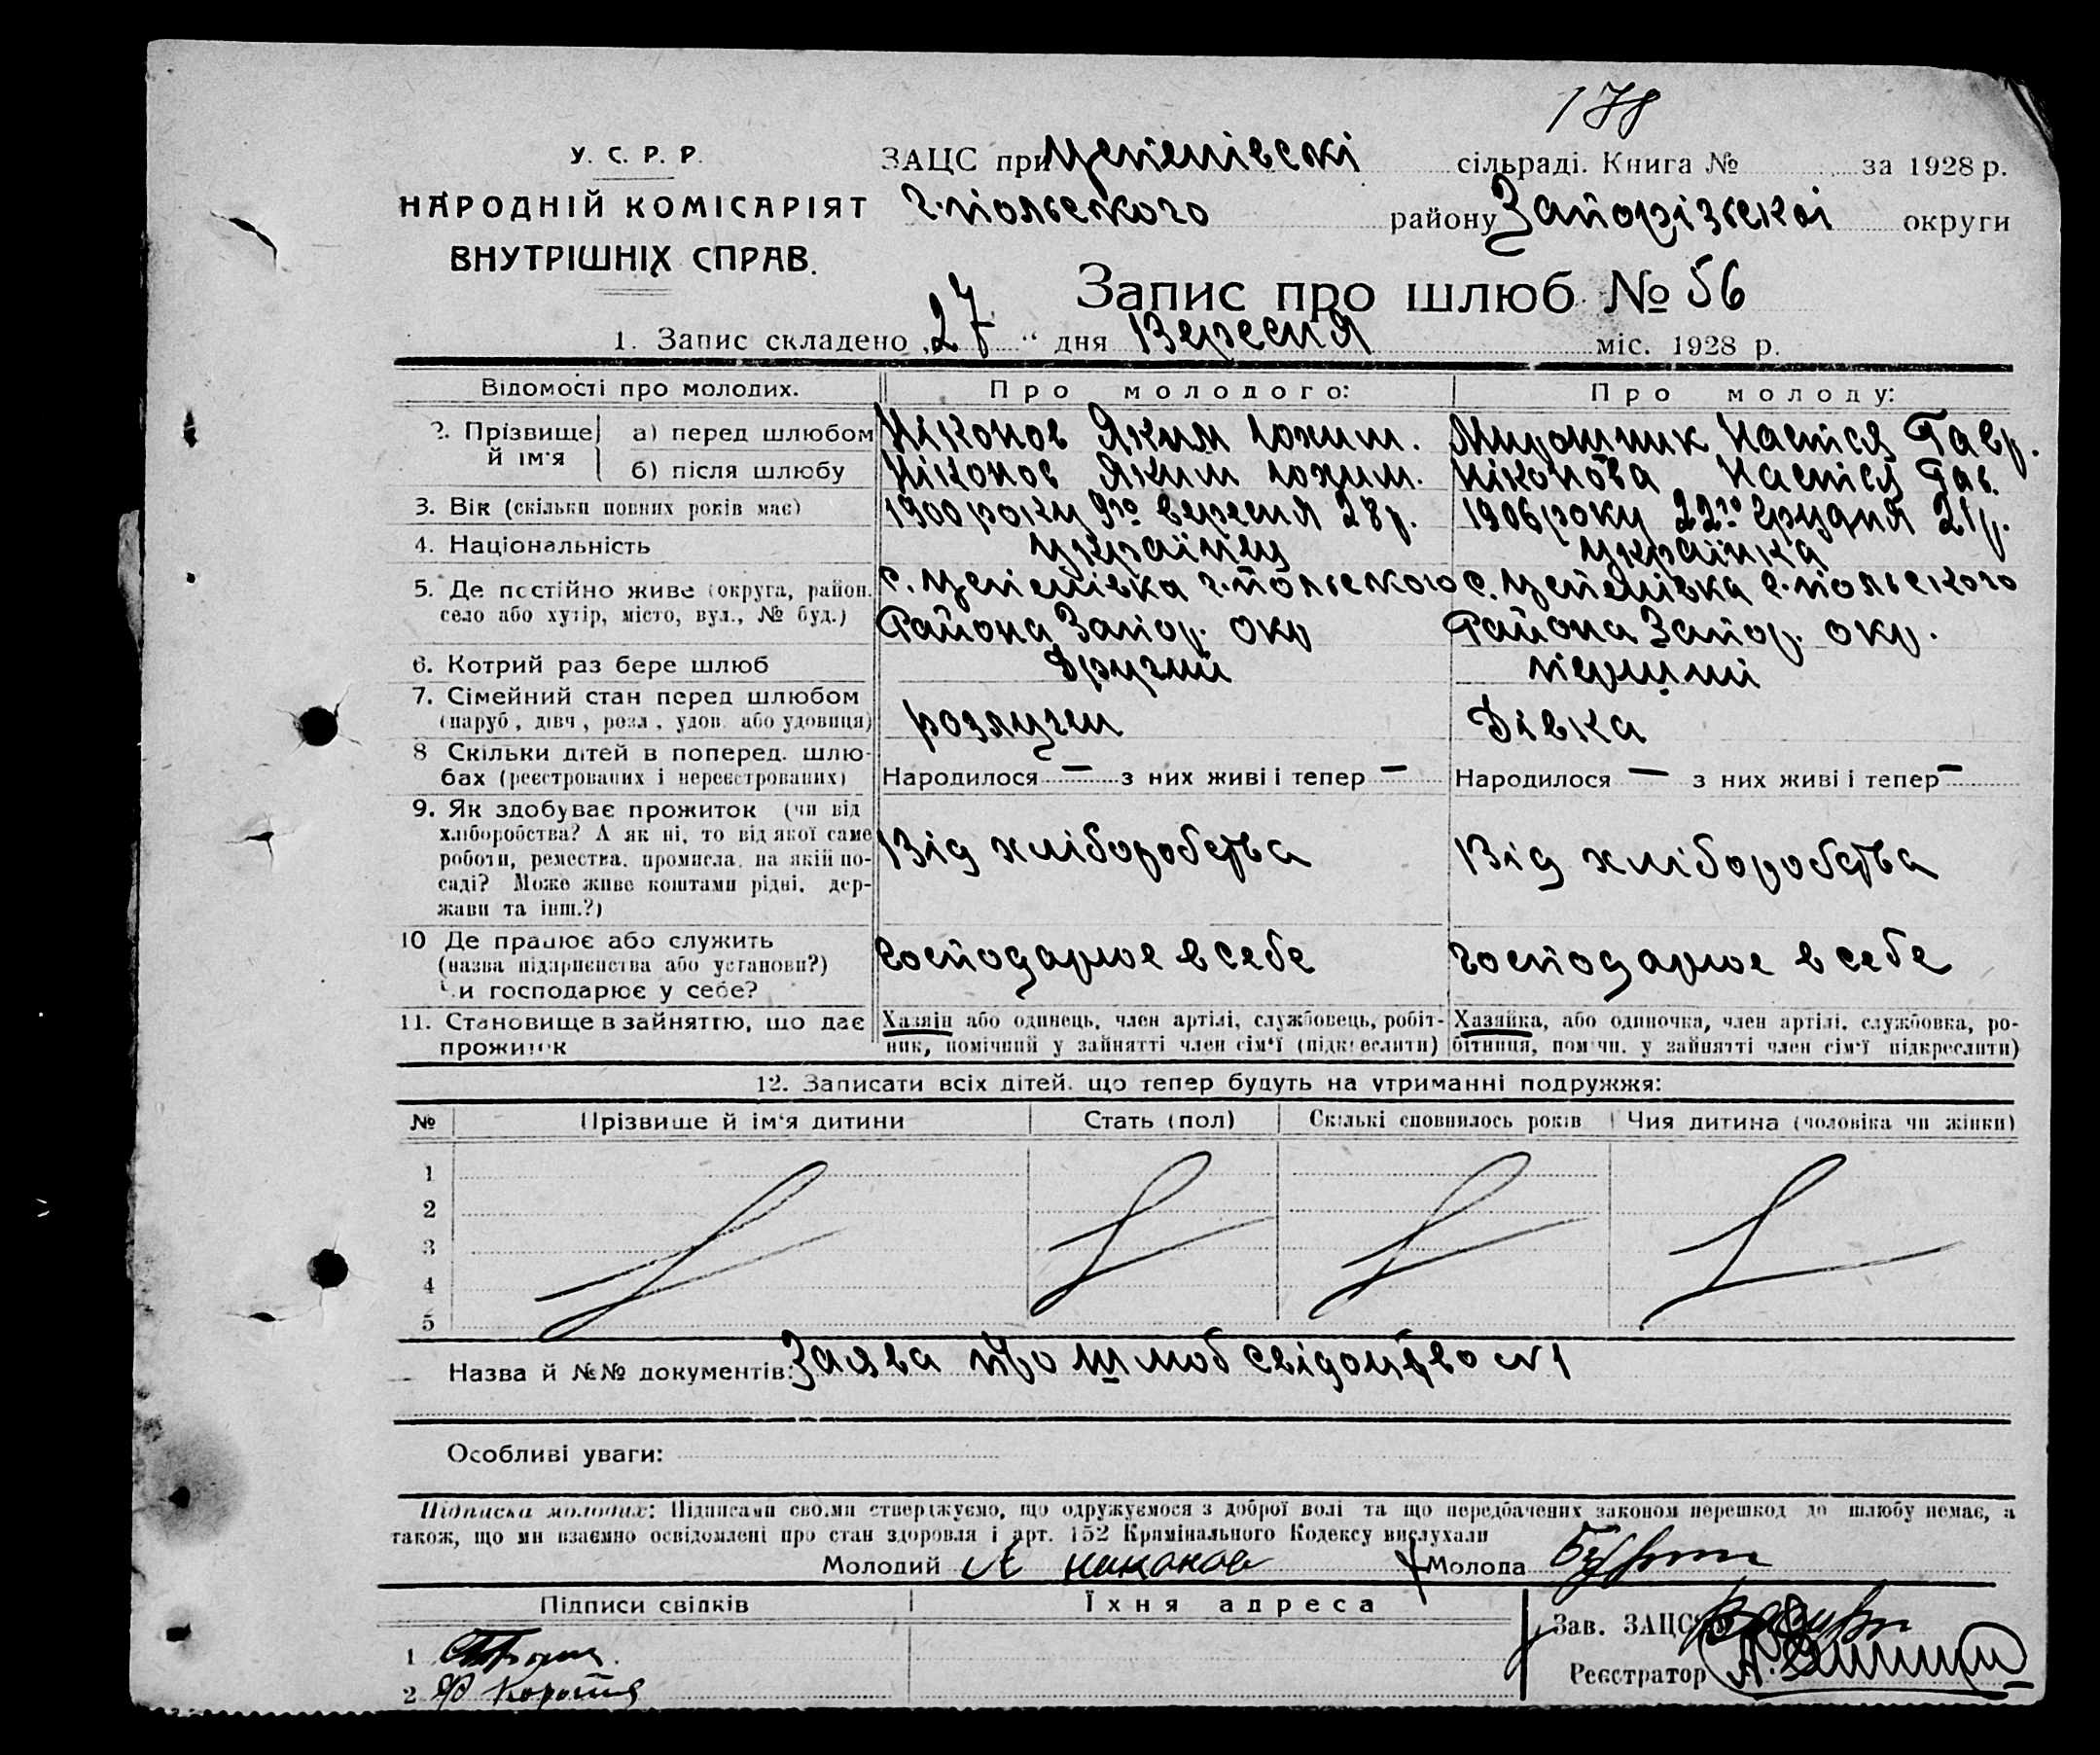 178
У. С. Р. Р.
НАРОДНІЙ КОМІСАРІЯТ
ВНУТРІШНІХ СПРАВ.
ЗАЦС при сільраді. Книга № за 1928 р.
г.польського району Запорізької округи
Запис про шлюб № 56
1. Запис складено „27“ дня Вересня міс. 1928 р.
Відомості про молодих. Про молодого: Про молоду:
2. Прізвище й ім'я
а) перед шлюбом Ніконов Яким Юхим. Мирошник Настія Гавр.
б) після шлюбу Ніконов Яким Юхим. Ніконова Настія Гав.
3. Вік (скільки повних років має) 1900 року 9го вересня 28 р. 1906 року 22го Грудня 21 р.
4. Національність українец українка
5. Де постійно живе (округа, район, село або хутір, місто, вул., № буд.)
г.польського г.польського
Района Запор. окр Района Запор. окр.
6. Котрий раз бере шлюб Другий первий
7. Сімейний стан перед шлюбом (паруб, дівч, розл, удов. або удовиця) розлучен Дівка
8 Скільки дітей в поперед. шлюбах (реєстрованих і нереєстрованих)
Народилося — з них живі і тепер — Народилося — з них живі і тепер —
9. Як здобуває прожиток (чи від хліборобства? А як ні, то від якої саме роботи, ремества, промисла, на якій посаді? Може живе коштами рідні, держави та інш.?)
Від хліборобства Від хліборобства
10 Де працює або служить (назва підприємства або установи?) Чи господарює у себе?
господарює в себе господарює в себе
11. Становище в зайняттю, що дає прожиток
Хазяїн або одинець, член артілі, службовець, робітник, помічний у зайнятті член сім'ї (підкреслити)
Хазяйка, або одиночка, член артілі, службовка, робітниця, помічн. у зайнятті член сім'ї підкреслити)
12. Записати всіх дітей, що тепер будуть на утриманні подружжя:
№ Прізвище й ім'я дитини Стать (пол) Скількі сповнилось років Чия дитина (чоловіка чи жінки)
1
2
3
4
5
Назва й №№ документів: Заява про шлюб свідоцтво №1
Особливі уваги:
Підписка молодих: Підписами своїми стверджуємо, що одружуємося з доброї волі та що передбачених законом перешкод до шлюбу немає, а
також, що ми взаємно освідомлені про стан здоровля і арт. 152 Крамінального Кодексу вислухали
Молодий Никонов Молода
Підписи свідків Їхня адреса
Зав. ЗАЦС
1
Реєстратор
2